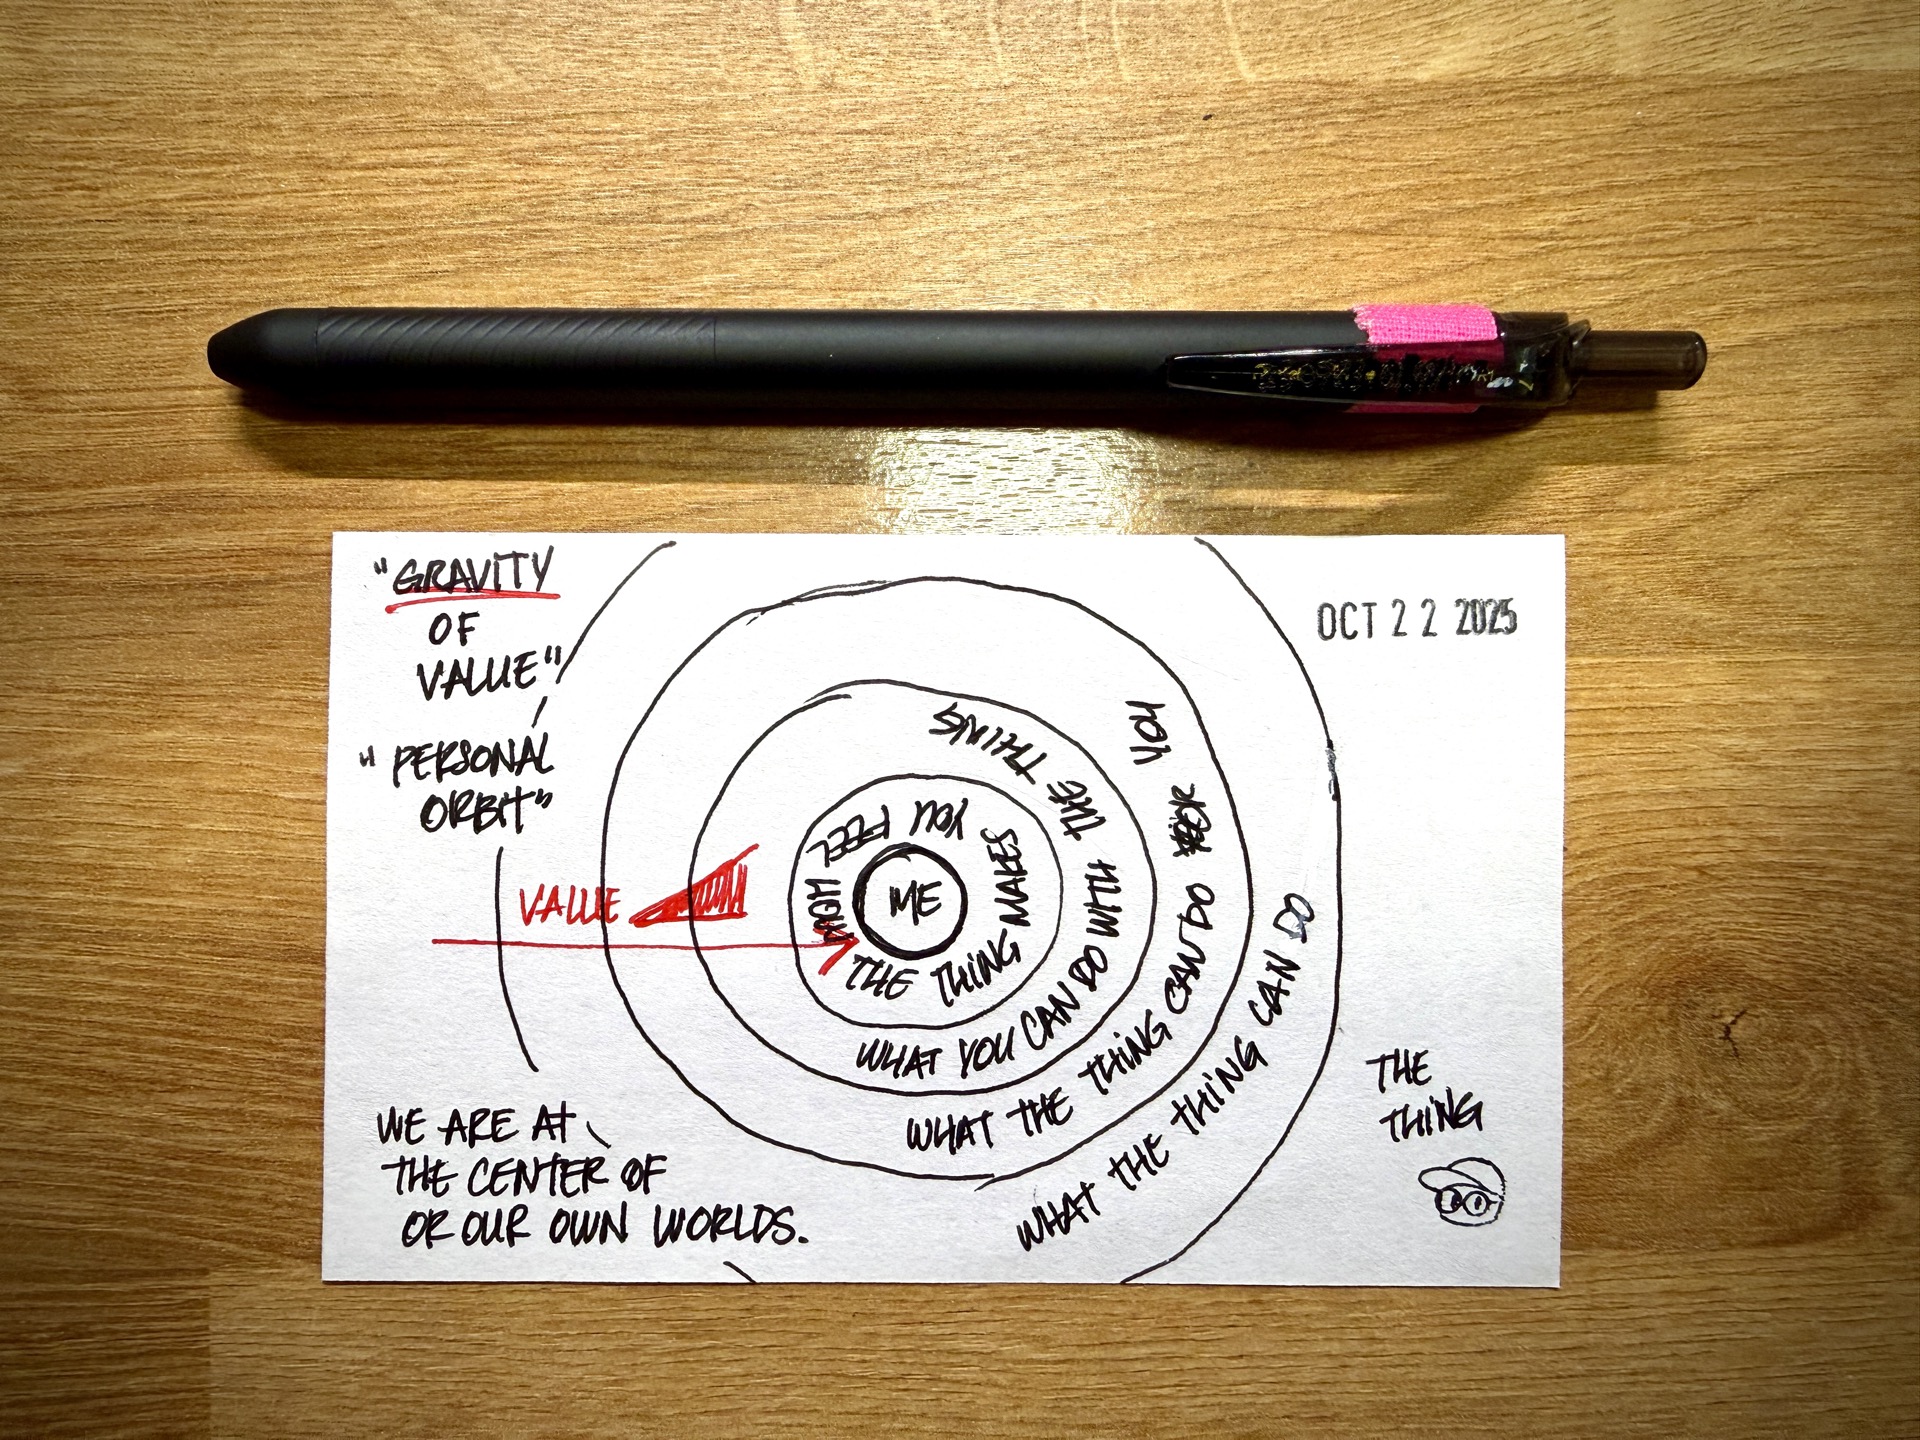 "GRAVITY
OF
VALUE"
"PERSONAL
ORBIT"
OCT 22 2025
VALUE
ME
HOW THE THING MAKES YOU FEEL
WHAT YOU CAN DO WITH THE THING
WHAT THE THING CAN DO FOR YOU
WHAT THE THING CAN DO
THE
THING
WE ARE AT
THE CENTER OF
OR OUR OWN WORLDS.